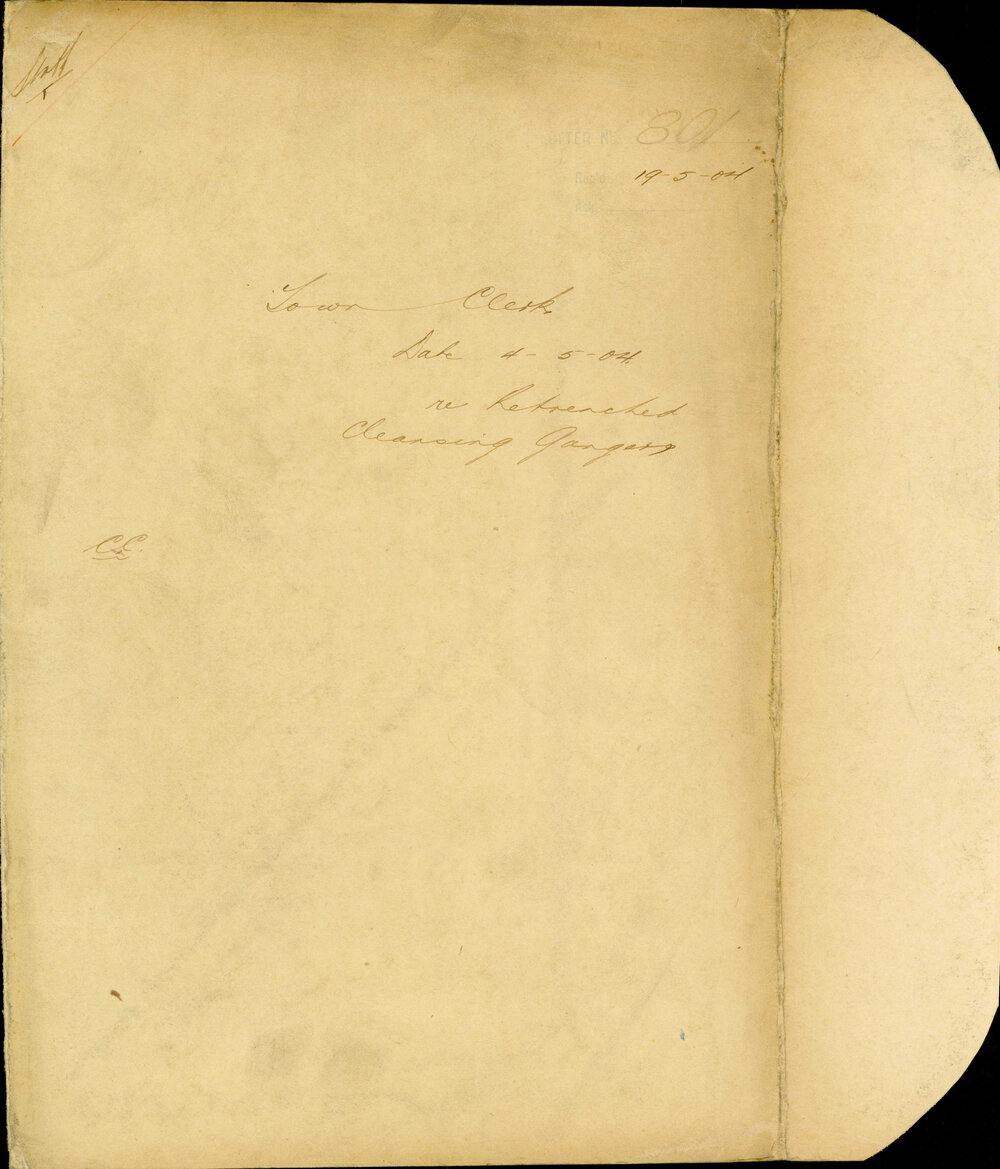 Staff
LETTER No. 801
Rec'd 19-5-04
Ans.
Town Clerk
Date 4-5-04
re Retrenched
Cleansing Gangers
C.E.